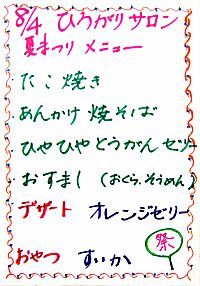 8/4 ひろがりサロン
夏まつり メニュー
・たこ焼き
・あんかけ焼そば
・ひやひやとうがんゼリー
・おすまし (おくら、そうめん)
デザート オレンジゼリー
おやつ すいか
祭